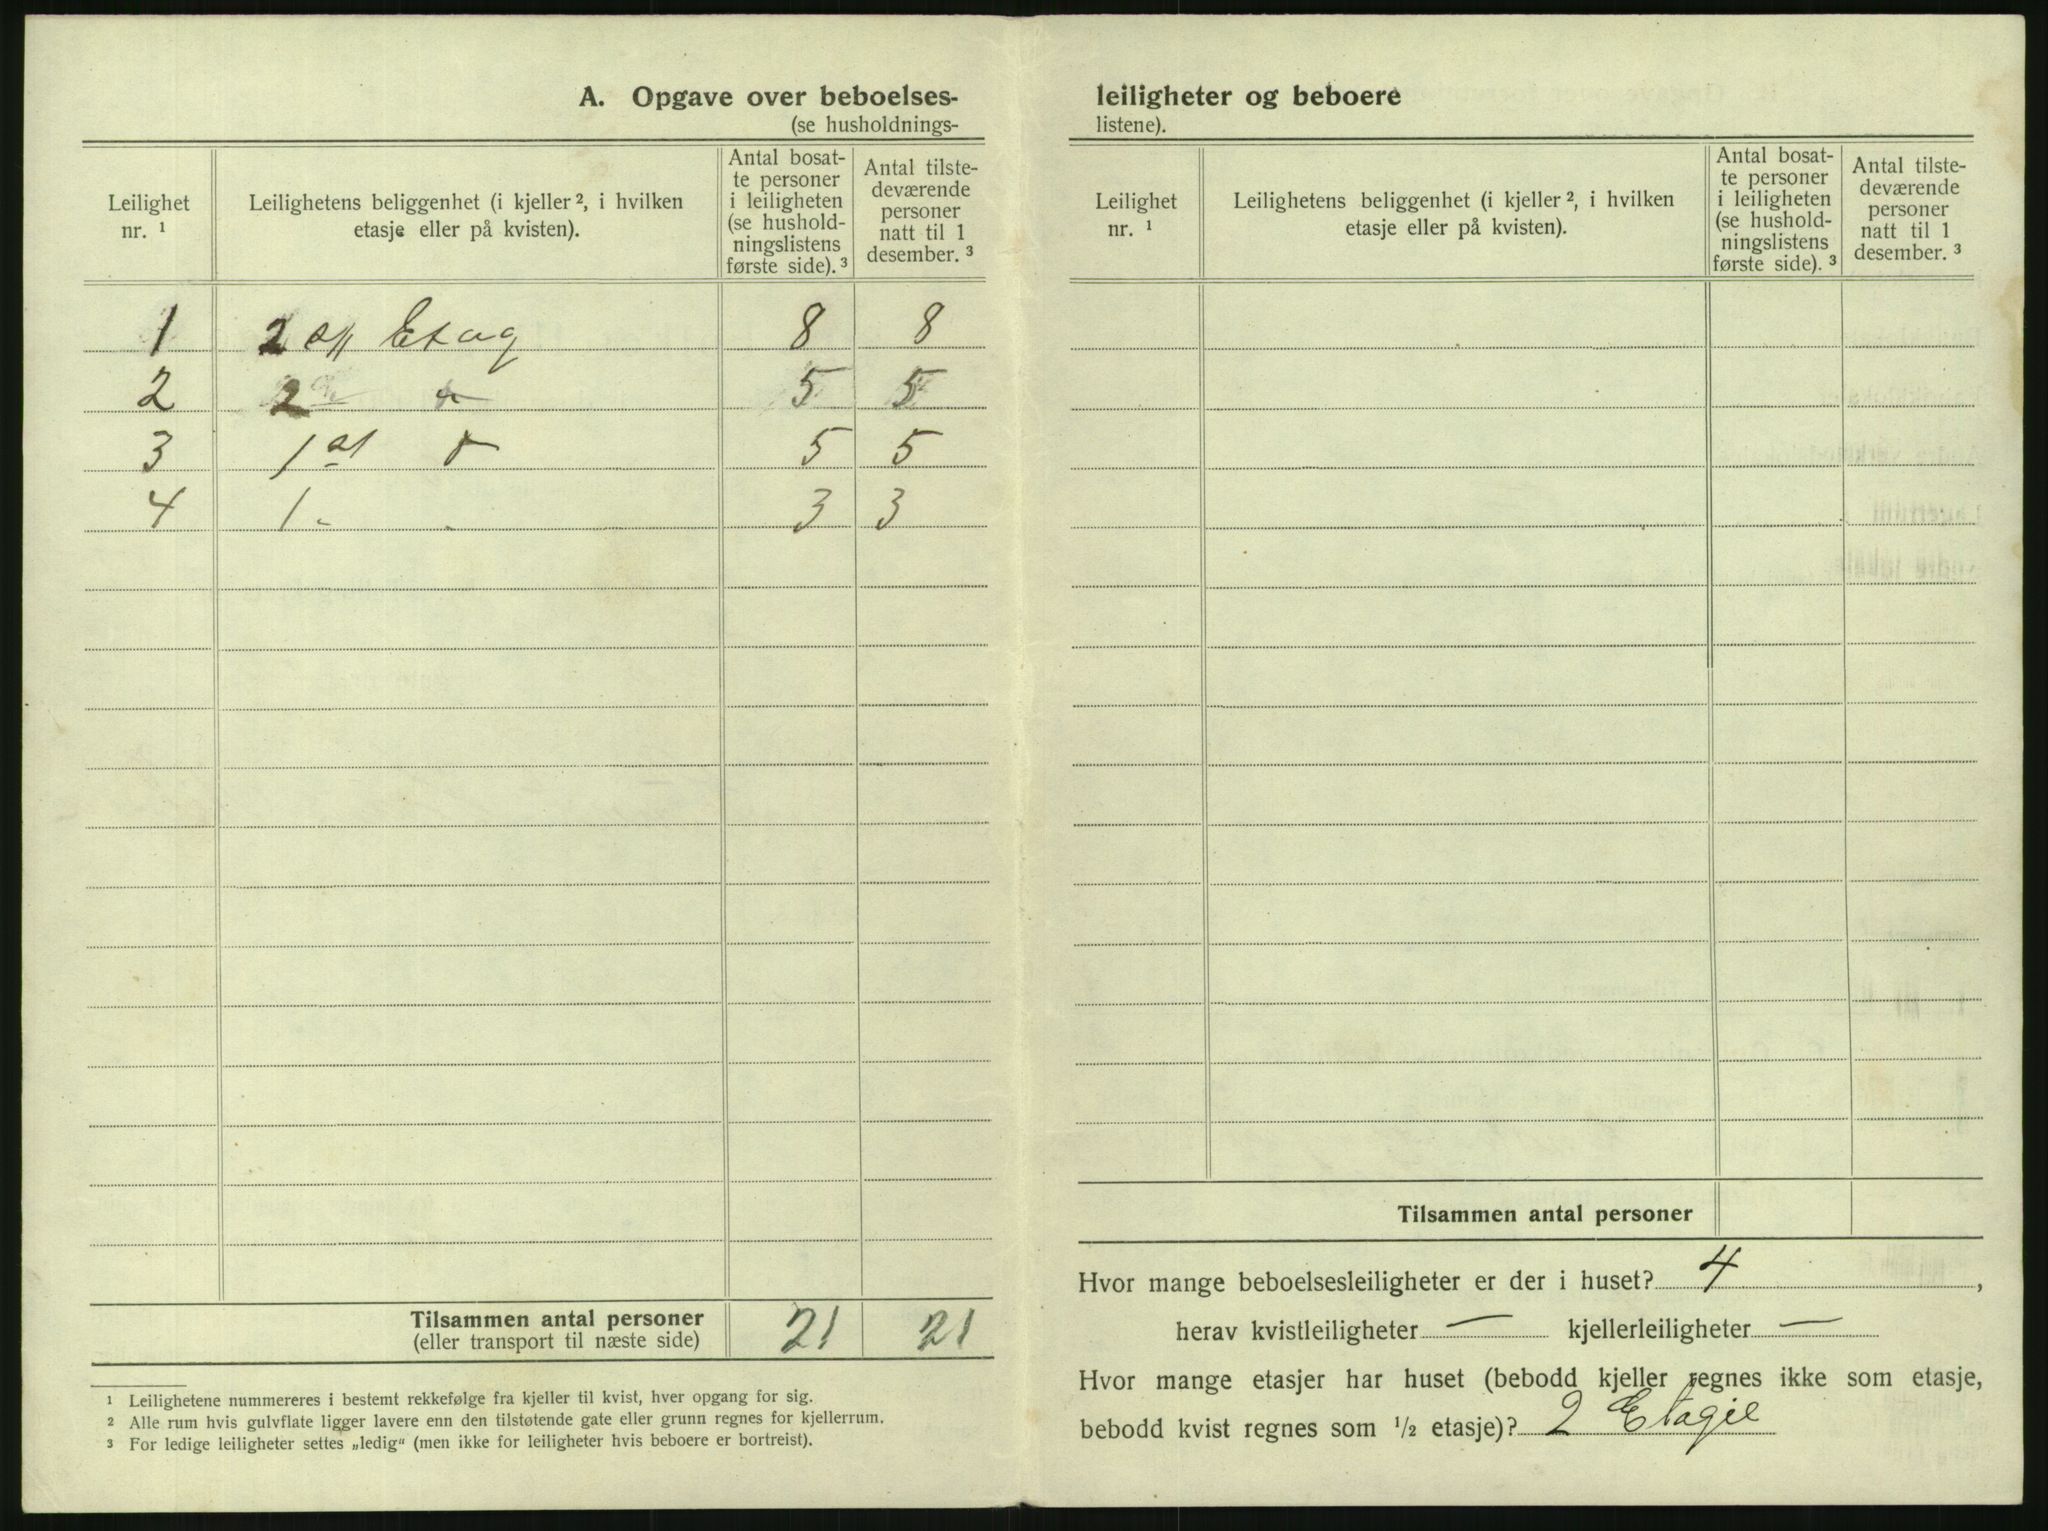 A. Opgave over beboelses-
(se husholdnings-
Leilighet nr. ¹
Leilighetens beliggenhet (i kjeller ², i hvilken etasje eller på kvisten).
Antal bosat-
te personer
i leiligheten
(se hushold-
ningslistens
første side). ³
Antal tilste-
deværende
personer
natt til 1
desember. ³
1 2 Etag 8 8
2 2 5 5
3 1 5 5
4 1 - 3 3
Tilsammen antal personer 21 21
(eller transport til næste side)
¹ Leilighetene nummereres i bestemt rekkefølge fra kjeller til kvist, hver opgang for sig.
² Alle rum hvis gulvflate ligger lavere enn den tilstøtende gate eller grunn regnes for kjellerrum.
³ For ledige leiligheter settes „ledig“ (men ikke for leiligheter hvis beboere er bortreist).
leiligheter og beboere
listene).
Leilighet nr. ¹
Leilighetens beliggenhet (i kjeller ², i hvilken etasje eller på kvisten).
Antal bosat-
te personer
i leiligheten
(se hushold-
ningslistens
første side). ³
Antal tilste-
deværende
personer
natt til 1
desember. ³
Tilsammen antal personer
Hvor mange beboelsesleiligheter er der i huset? 4,
herav kvistleiligheter — kjellerleiligheter —
Hvor mange etasjer har huset (bebodd kjeller regnes ikke som etasje,
bebodd kvist regnes som ½ etasje)? 2 Etagie